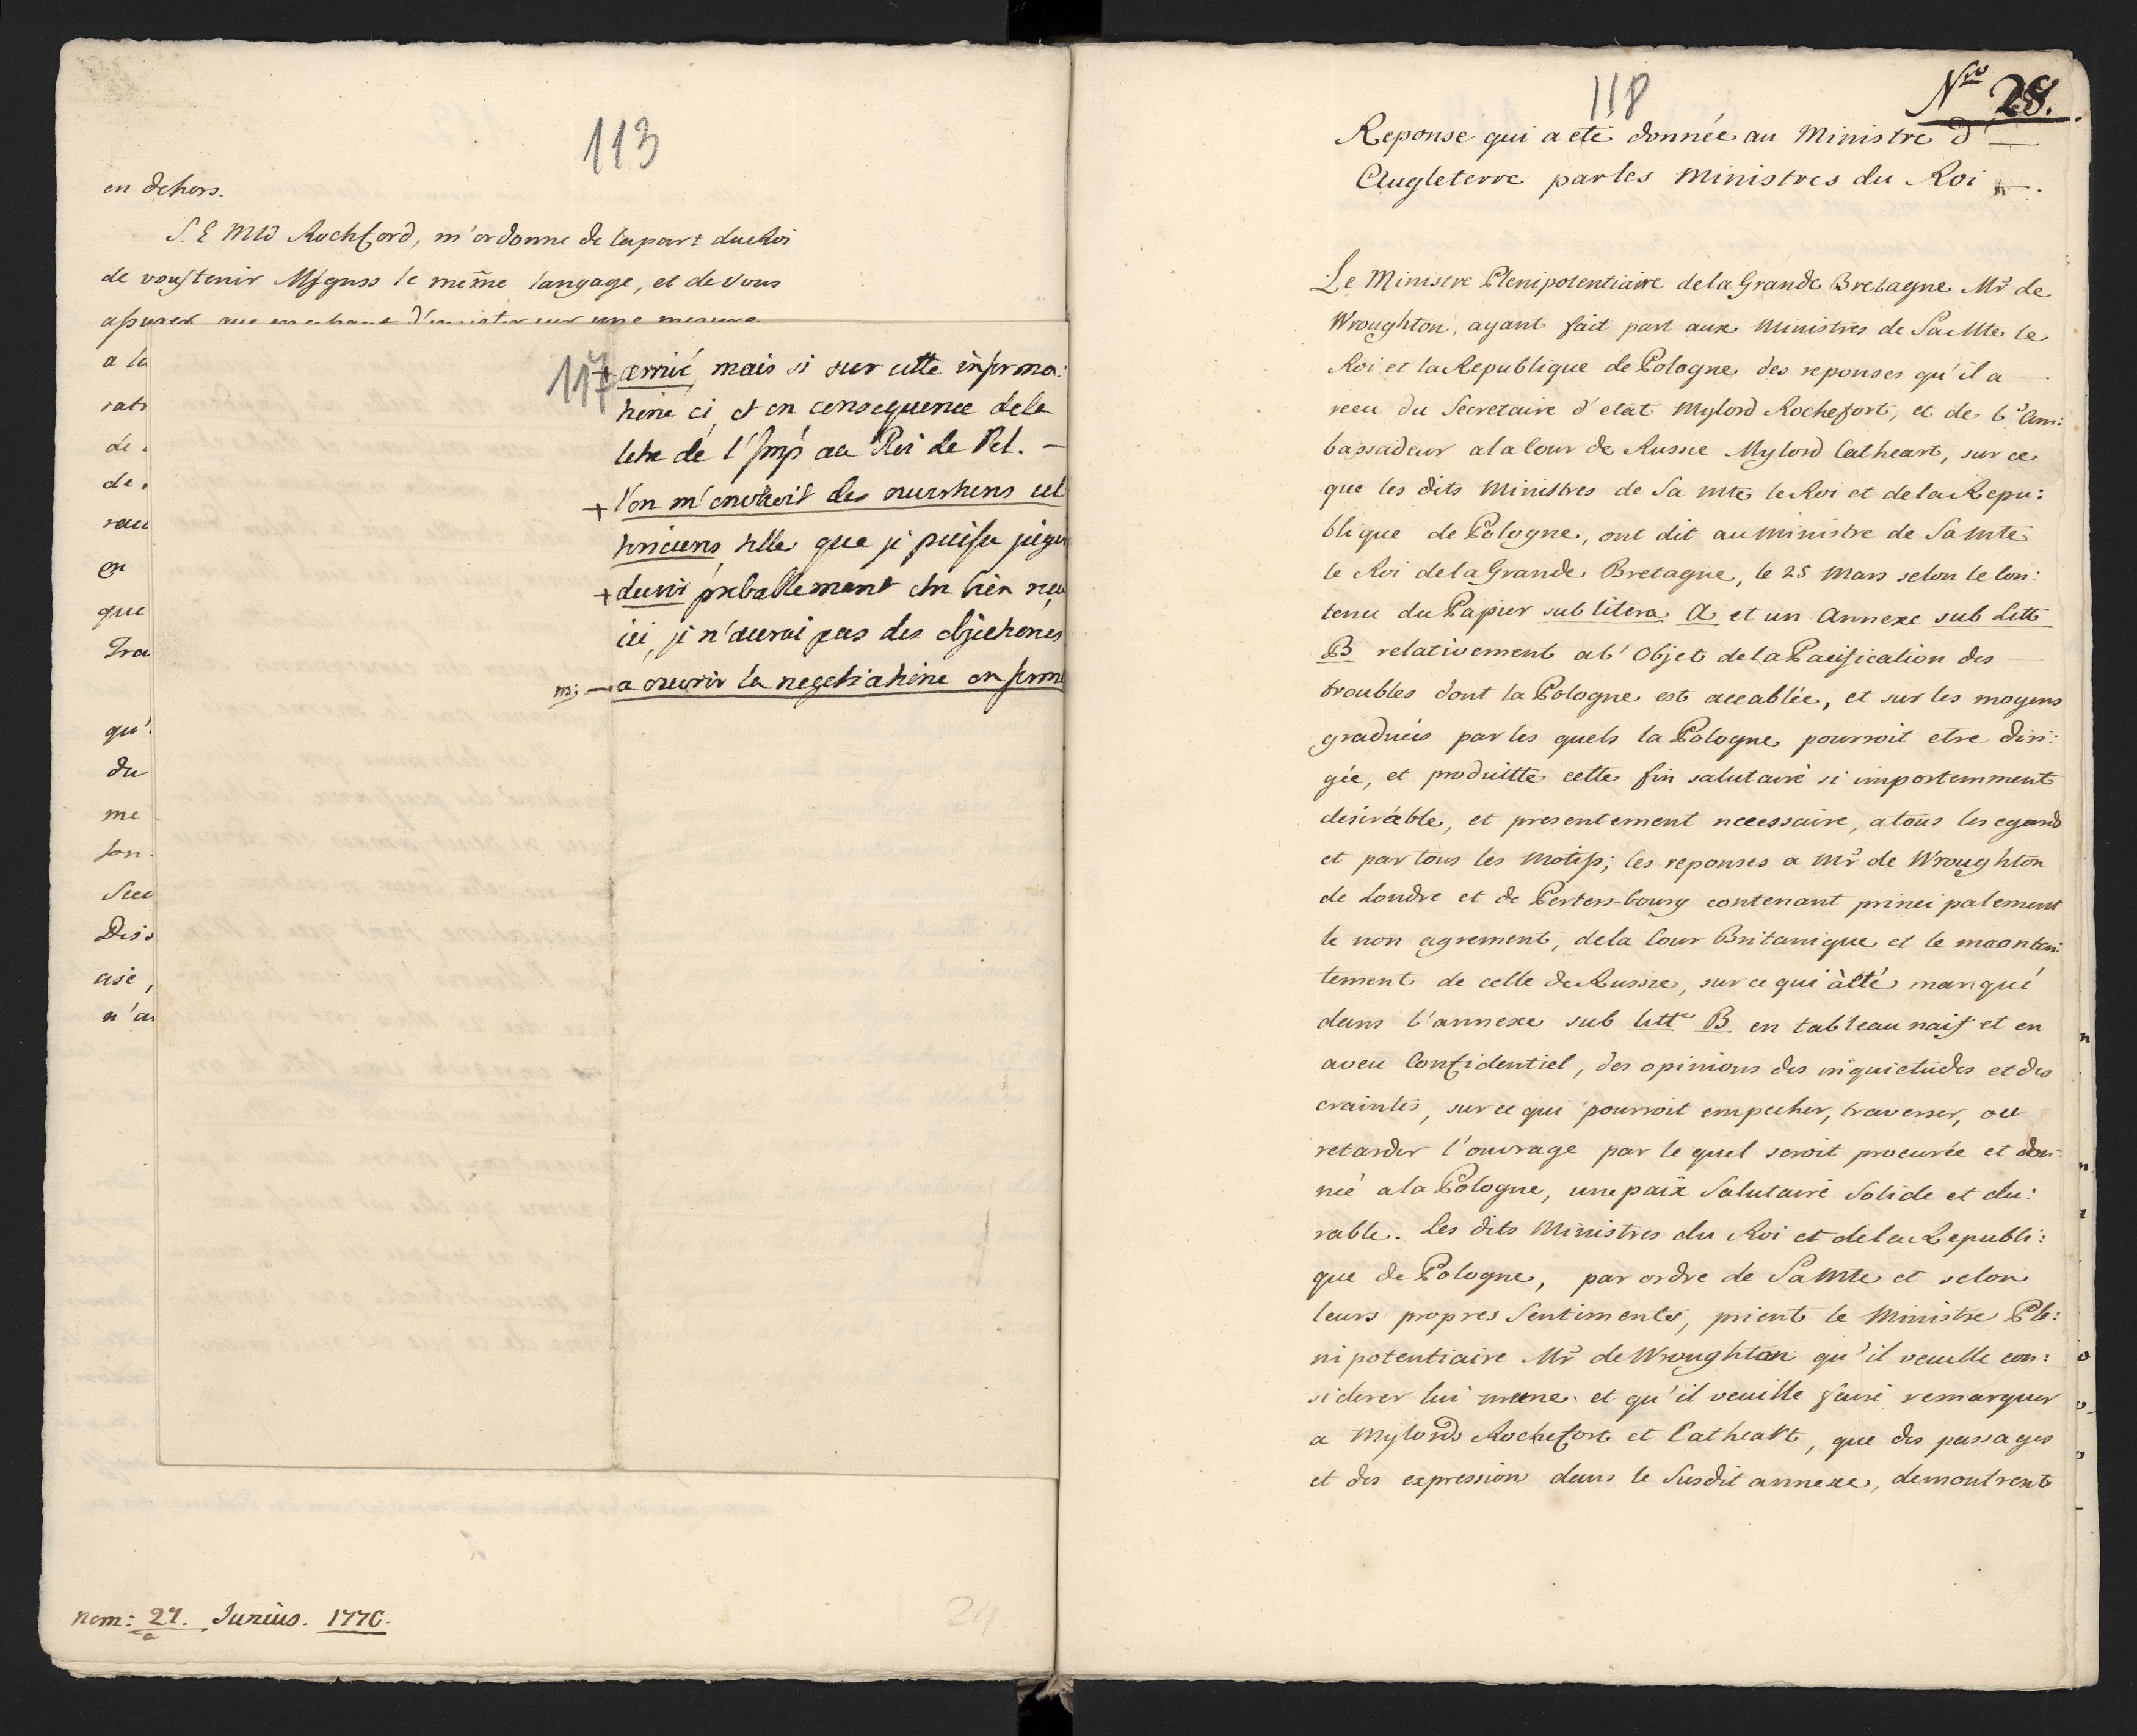 113
en dehors.
S. E Mld Rochford, m'ordonne de la part du Roi
de vous tenir Msgnrs le même langage, et de vous
assurer que
a la
rati
de
de
rau
en
que
Tra
qu'
du
me
son
Secr
Diss
aisé,
n'a
117
+ arrivé, mais si sur cette informa:
tione ci, et en consequence de la
lettre de l'Imp au Roi de Pol. —
+ l'on m'envoioit des ouvertures ul
terieures telles que je puisse juger
+ devoir probablement etre bien reçu
ici, je n'aurai pas des objectiones
m; — a ouvrir la negotiatione en forme
nom: 27. Junius. 1776.
a
118
Nro 28.
Reponse qui a eté donnée au Ministre d'—
Angleterre par les Ministres du Roi —.
Le Ministre Plenipotentiaire de la Grande Bretagne Mr de
Wroughton, ayant fait part aux Ministres de Sa Mte le
Roi et la Republique de Pologne des reponses qu'il a —
receu du Secretaire d'etat Mylord Rochefort, et de l'Am:
bassadeur a la Cour de Russie Mylord Cathcart, sur ce
que les dits Ministres de Sa Mte le Roi et de la Repu:
blique de Pologne, ont dit au Ministre de Sa Mte
le Roi de la Grande Bretagne, le 25 Mars selon le Con:
tenu du Papier sub litera A et un Annexe sub Litt
B relativement a l'Objet de la Pacification des —
troubles dont la Pologne est accablée, et sur les moyens
graduées par les quels la Pologne pourroit etre diri:
gée, et produitte cette fin salutaire si importemment
desirable, et presentement necessaire, a tous les egards
et par tous les Motifs; les reponses a Mr de Wroughton
de Londre et de Perters-bourg contenant principalement
le non agrement, de la Cour Britanique et le meconten:
tement de celle de Russie, sur ce qui à èté marqué
dans l'annexe sub litte B en tableau naif et en
aveu Confidentiel, des opinions des inquietudes et des
craintes, sur ce qui pourroit empecher, traverser, ou
retarder l'ouvrage par le quel seroit procurée et don:
née a la Pologne, une paix Salutaire Solide et du:
rable. Les dits Ministres du Roi et de la Republi:
que de Pologne, par ordre de Sa Mte et selon
leurs propres Sentiments, prient le Ministre Ple:
nipotentiaire Mr de Wroughton qu'il veuille con:
siderer lui meme et qu'il veuille faire remarquer
a Mylords Rochefort et Cathcart, que des passages
et des expression dans le Susdit annexe, demontrent